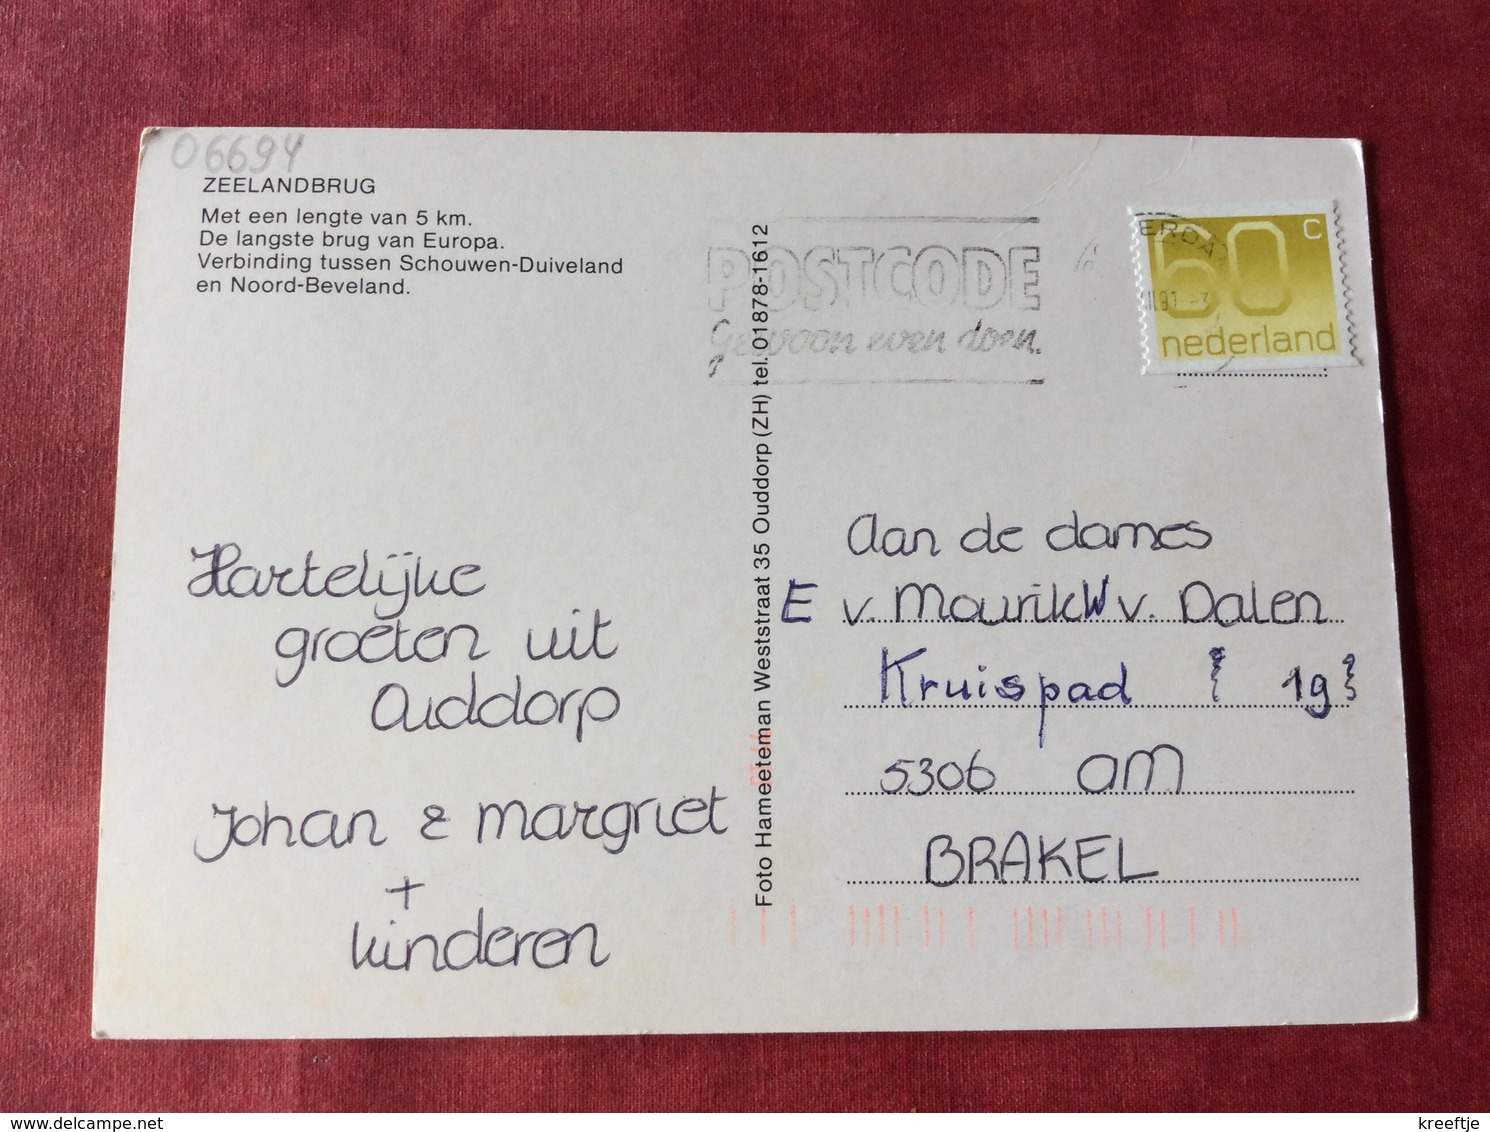 06694
ZEELANDBRUG
Met een lengte van 5 km.
De langste brug van Europa.
Verbinding tussen Schouwen-Duiveland
en Noord-Beveland.
Hartelijke
groeten uit
Ouddorp
Johan & Margriet
+
kinderen
Foto Hameeteman Weststraat 35 Ouddorp (ZH) tel. 01878-1612
POSTCODE
Gewoon even doen.
ERDA
91
60 c
nederland
Aan de dames
E v. Mourik W v. Dalen
Kruispad 19
5306 AM
BRAKEL
kreeftje